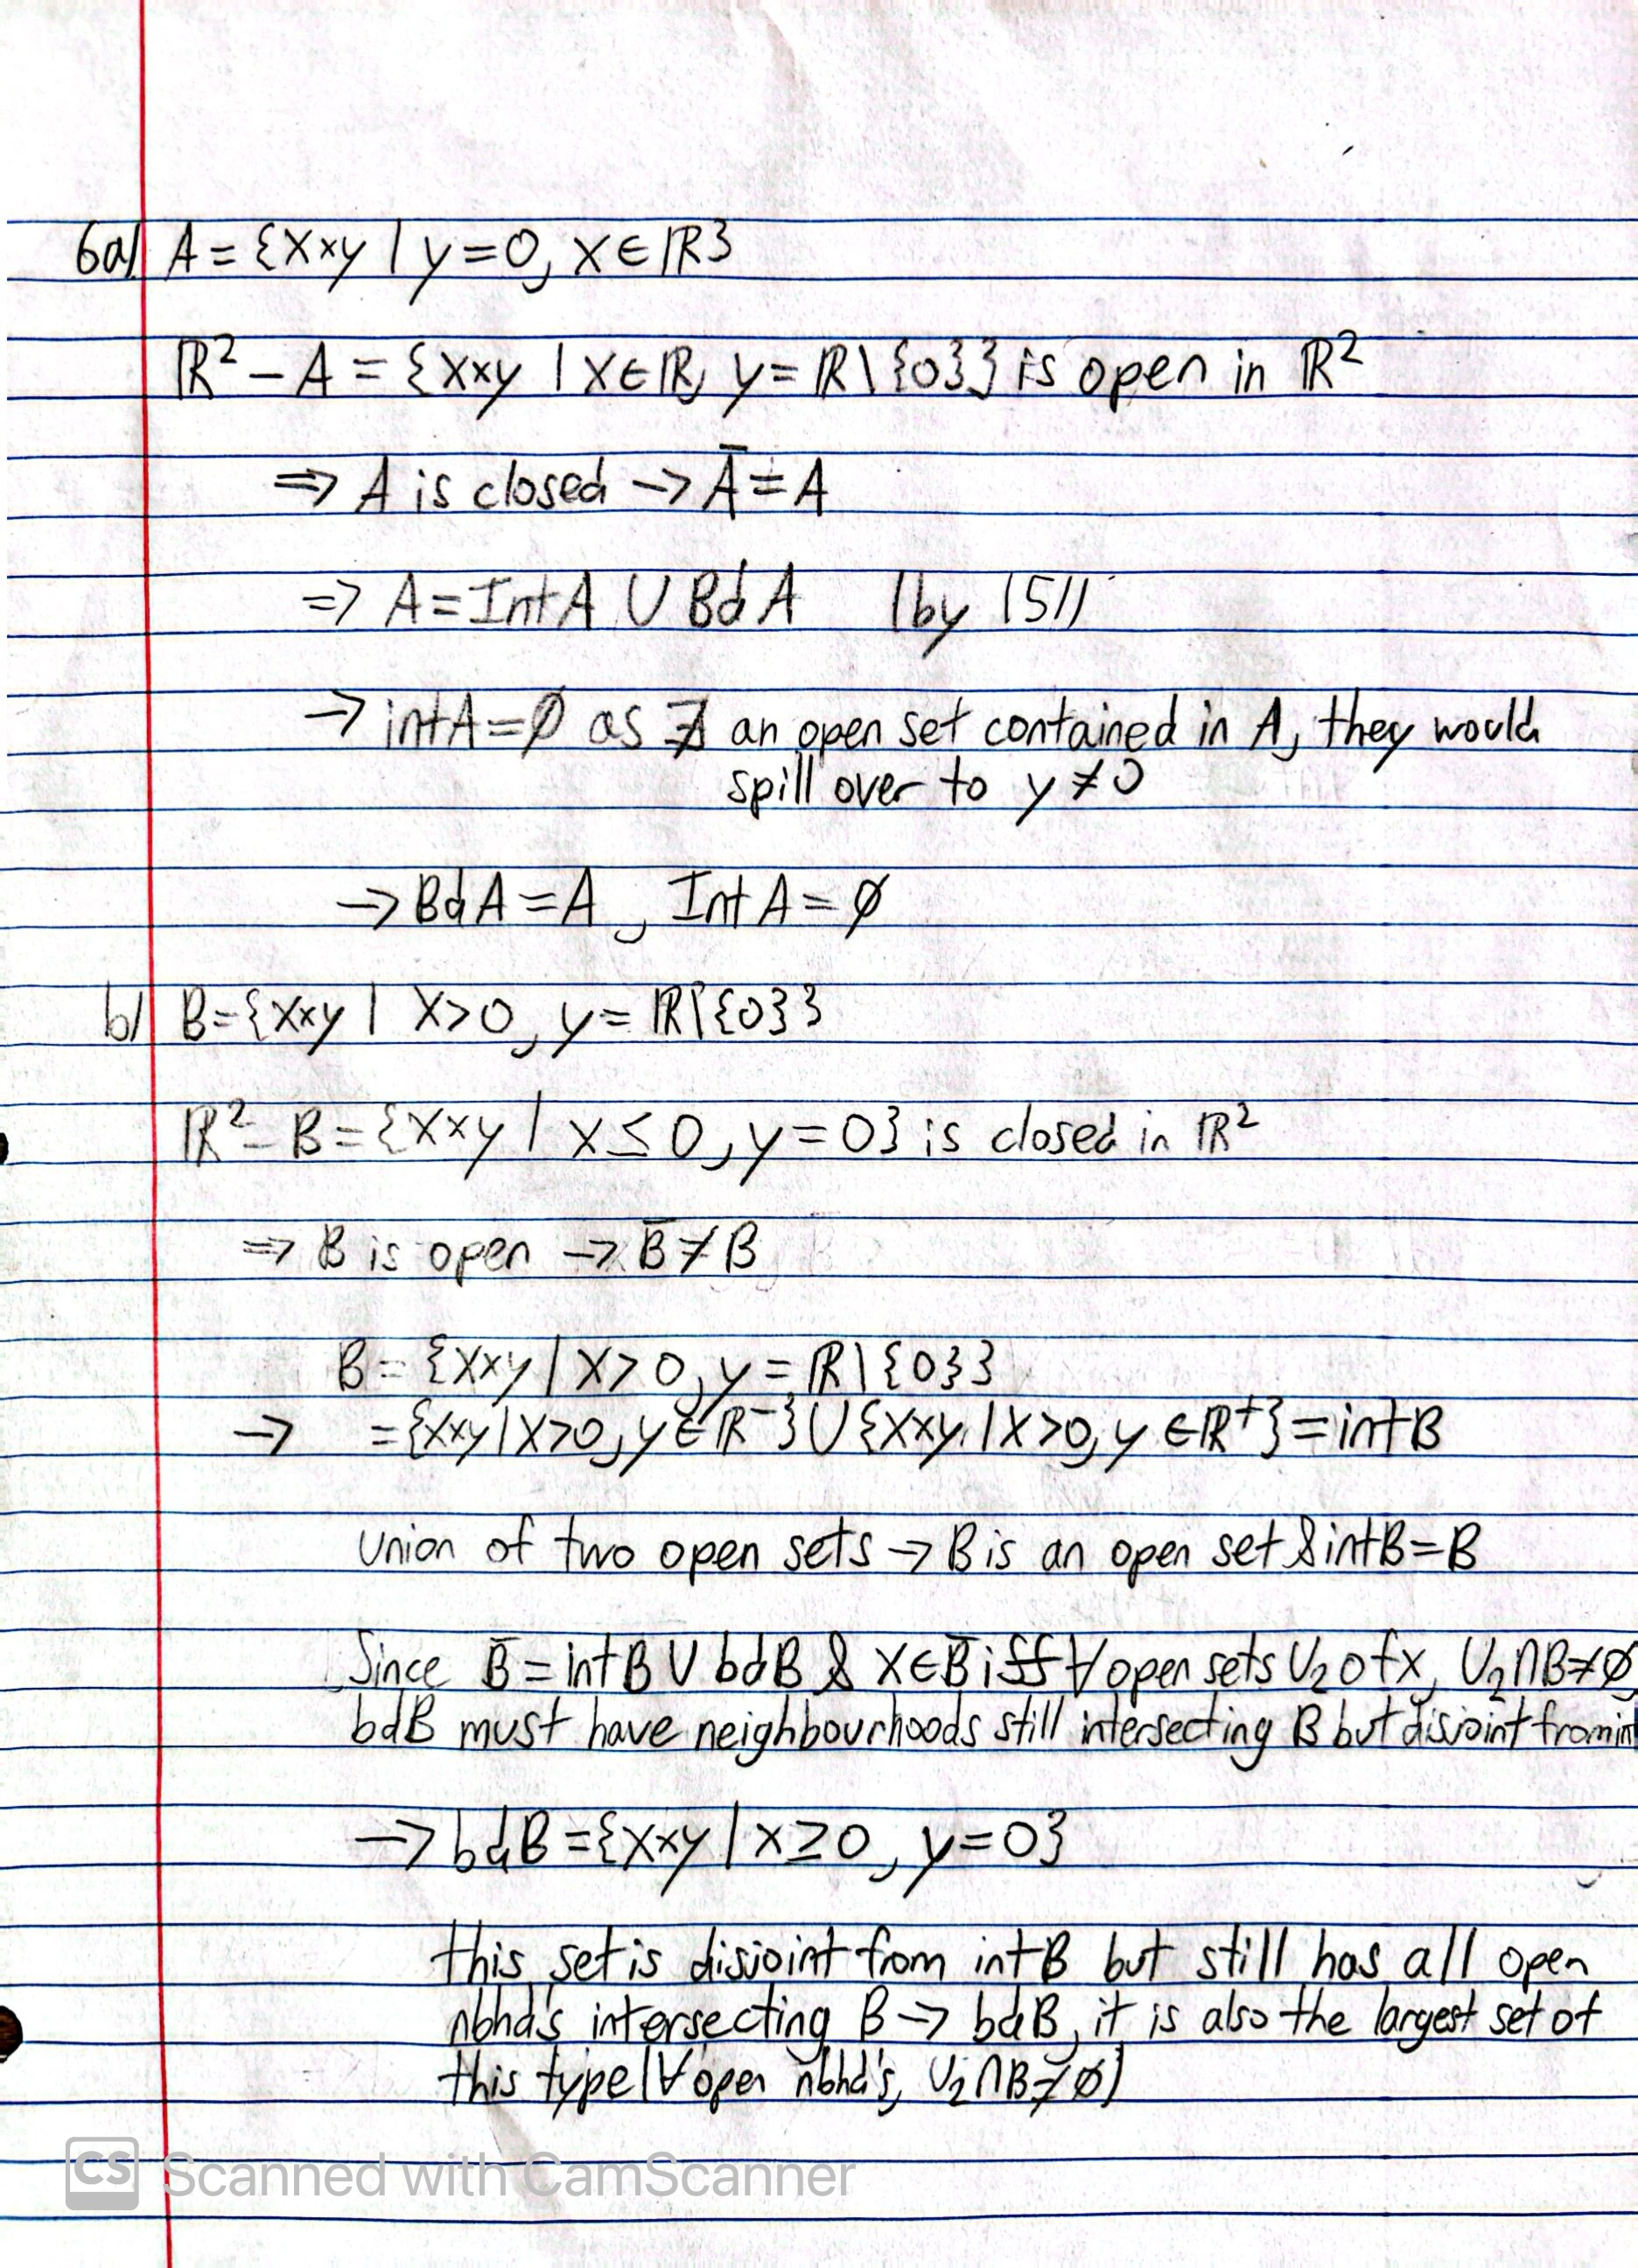 6a) A = {x×y | y=0, x∈ℝ}
ℝ² − A = {x×y | x∈ℝ, y = ℝ\{0}} is open in ℝ²
⇒ A is closed → Ā = A
⇒ A = Int A ∪ Bd A (by (5))
→ int A = ∅ as ∄ an open set contained in A, they would
spill over to y ≠ 0
→ Bd A = A, Int A = ∅
b) B = {x×y | x>0, y = ℝ\{0}}
ℝ² − B = {x×y | x ≤ 0, y = 0} is closed in ℝ²
⇒ B is open → B̄ ≠ B
B = {x×y | x>0, y = ℝ\{0}}
→ = {x×y | x>0, y∈ℝ⁻} ∪ {x×y | x>0, y∈ℝ⁺} = int B
union of two open sets → B is an open set & int B = B
Since B̄ = int B ∪ bd B & x∈B̄ iff ∀ open sets U₂ of x, U₂∩B≠∅,
bd B must have neighbourhoods still intersecting B but disjoint from in
→ bd B = {x×y | x ≥ 0, y = 0}
this set is disjoint from int B but still has all open
nbhd's intersecting B → bd B, it is also the largest set of
this type (∀ open nbhd's, U₂∩B≠∅)
CS Scanned with CamScanner